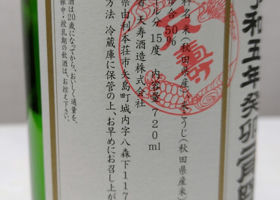 令和五年癸卯
原料名 米(秋田県産)、米こうじ(秋田県産米)
60%
15度 内容量720ml
天寿酒造株式会社
秋田県由利本荘市矢島町城内字八森下117
方法 冷蔵庫に保管の上、お早めにお召し上が
酒は20歳になってから。おいしく適量を。
妊娠中・授乳期の飲酒は、お控え下さい。